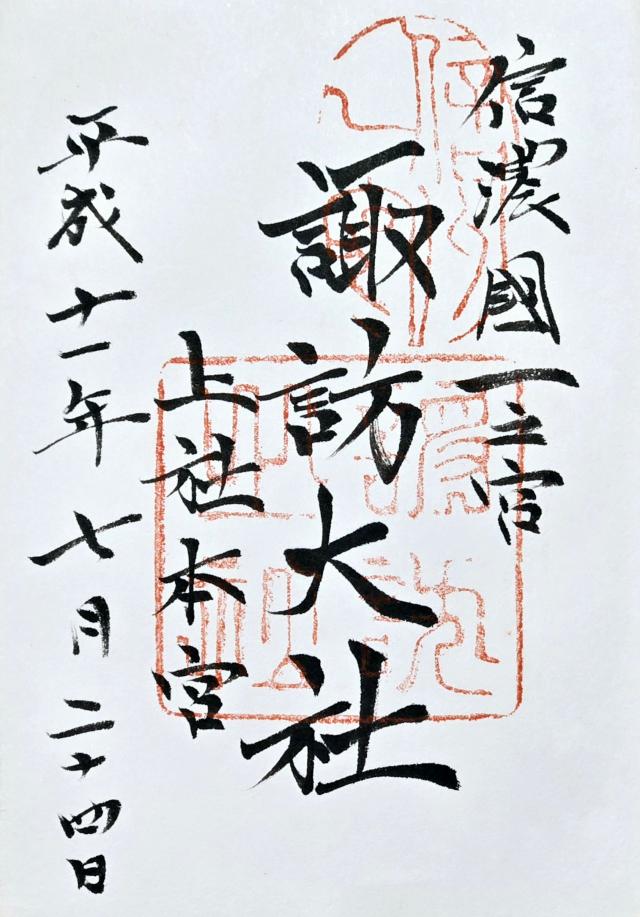 信濃國一之宮
諏訪大社
上社本宮
平成十一年七月二十四日